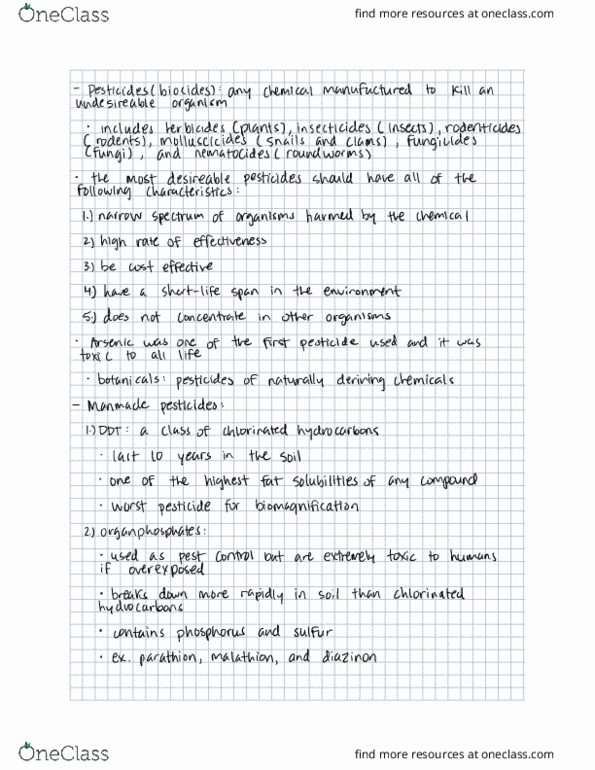 OneClass
find more resources at oneclass.com
- Pesticides (biocides): any chemical manufuctured to kill an
undesireable organism
· includes herbicides (plants), insecticides (insects), rodenticides
(rodents), molluscicides (snails and clams), fungicides
(fungi), and nematocides (roundworms)
· the most desireable pesticides should have all of the
following characteristics:
1.) narrow spectrum of organisms harmed by the chemical
2) high rate of effectiveness
3) be cost effective
4) have a short-life span in the environment
5.) does not concentrate in other organisms
· Arsenic was one of the first pesticide used and it was
toxic to all life
· botanicals: pesticides of naturally deriving chemicals
- Manmade pesticides:
1.) DDT: a class of chlorinated hydrocarbons
· last 10 years in the soil
· one of the highest fat solubilities of any compound
· worst pesticide for biomagnification
2) organphosphates:
· used as pest control but are extremely toxic to humans
if overexposed
· breaks down more rapidly in soil than chlorinated
hydrocarbons
· contains phosphorus and sulfur
· ex. parathion, malathion, and diazinon
OneClass
find more resources at oneclass.com